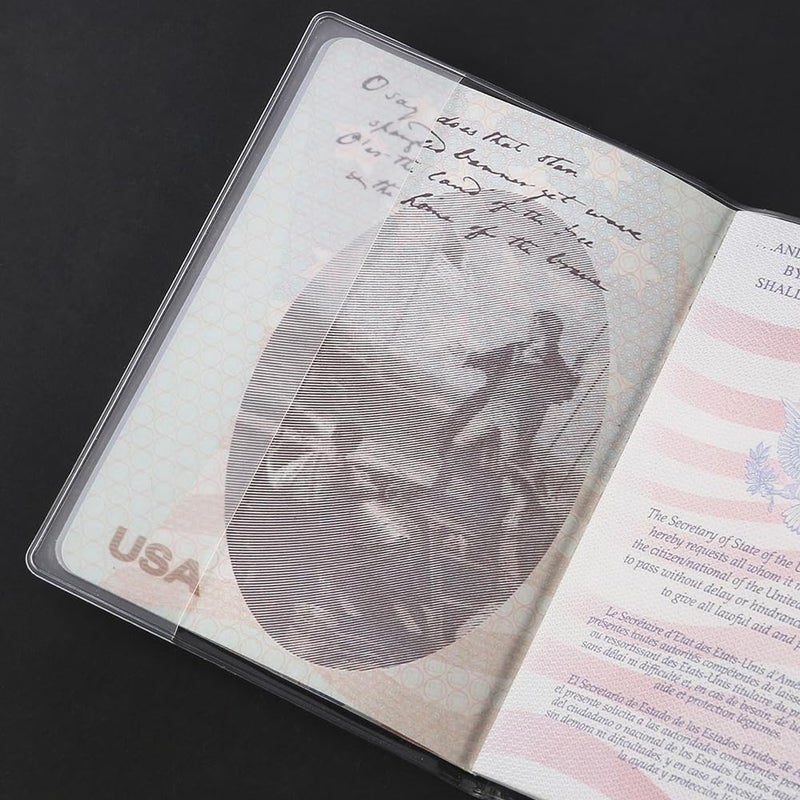 O say does that star
spangled banner yet wave
O'er the land of the free
on the home of the brave
USA
...AND
BY
SHALL
The Secretary of State of the U
hereby requests all whom it m
the citizen/national of the United
to pass without delay or hindran
to give all lawful aid and p
Le Secrétaire d'Etat des Etats-Unis d'Amé
présentes toutes autorités compétentes de laisse
ou ressortissant des Etats-Unis titulaire du p
sans délai ni difficulté et, en cas de besoin, de
aide et protection légitimes.
El Secretario de Estado de los Estados Unidos de A
el presente solicita a las autoridades competentes per
del ciudadano o nacional de los Estados Unidos aquí
sin demora ni dificultades, y en caso de necesida
la ayuda y protección